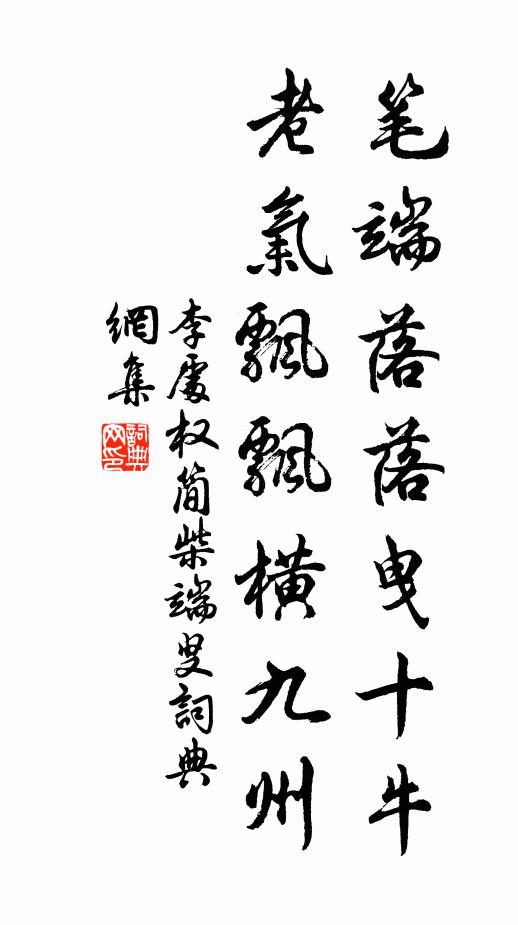 笔端落落曳十牛
老氣飄飄横九州
李處权简柴端叟詞典
網集
詞典网印